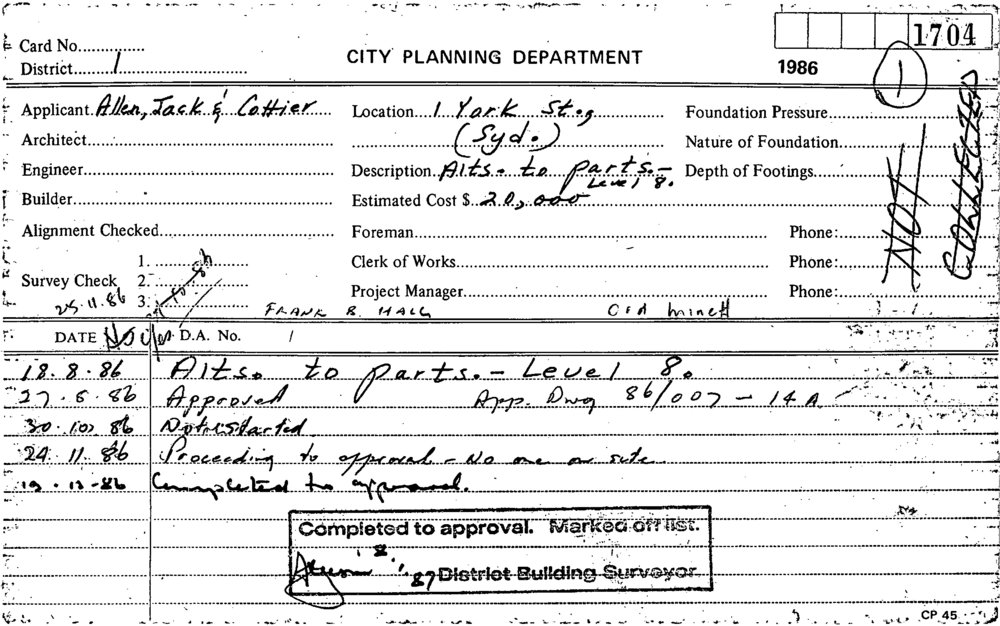 1704
Card No.
District 1
CITY PLANNING DEPARTMENT
1986
1
NOT
Applicant Allen, Jack & Cottier
Location 1 York St.,
Foundation Pressure
Architect
(Syd.)
Nature of Foundation
Engineer
Description Alts. to parts. -
Level 8.
Depth of Footings
Builder
Estimated Cost $ 20,000
Alignment Checked
Foreman
Phone:
1.
Clerk of Works
Phone:
Survey Check 2.
25.11.86 3.
Project Manager
Phone:
FRANK B. HALL
DATE
D.A. No.
18.8.86 Alts. to parts. - Level 8.
Approved App. Dwg 86/007 - 14A
30.10.86 Not started
24.11.86 Proceeding to approval - No one on site
Completed to approval.
Completed to approval. Marked off list.
87 District Building Surveyor
CP 45